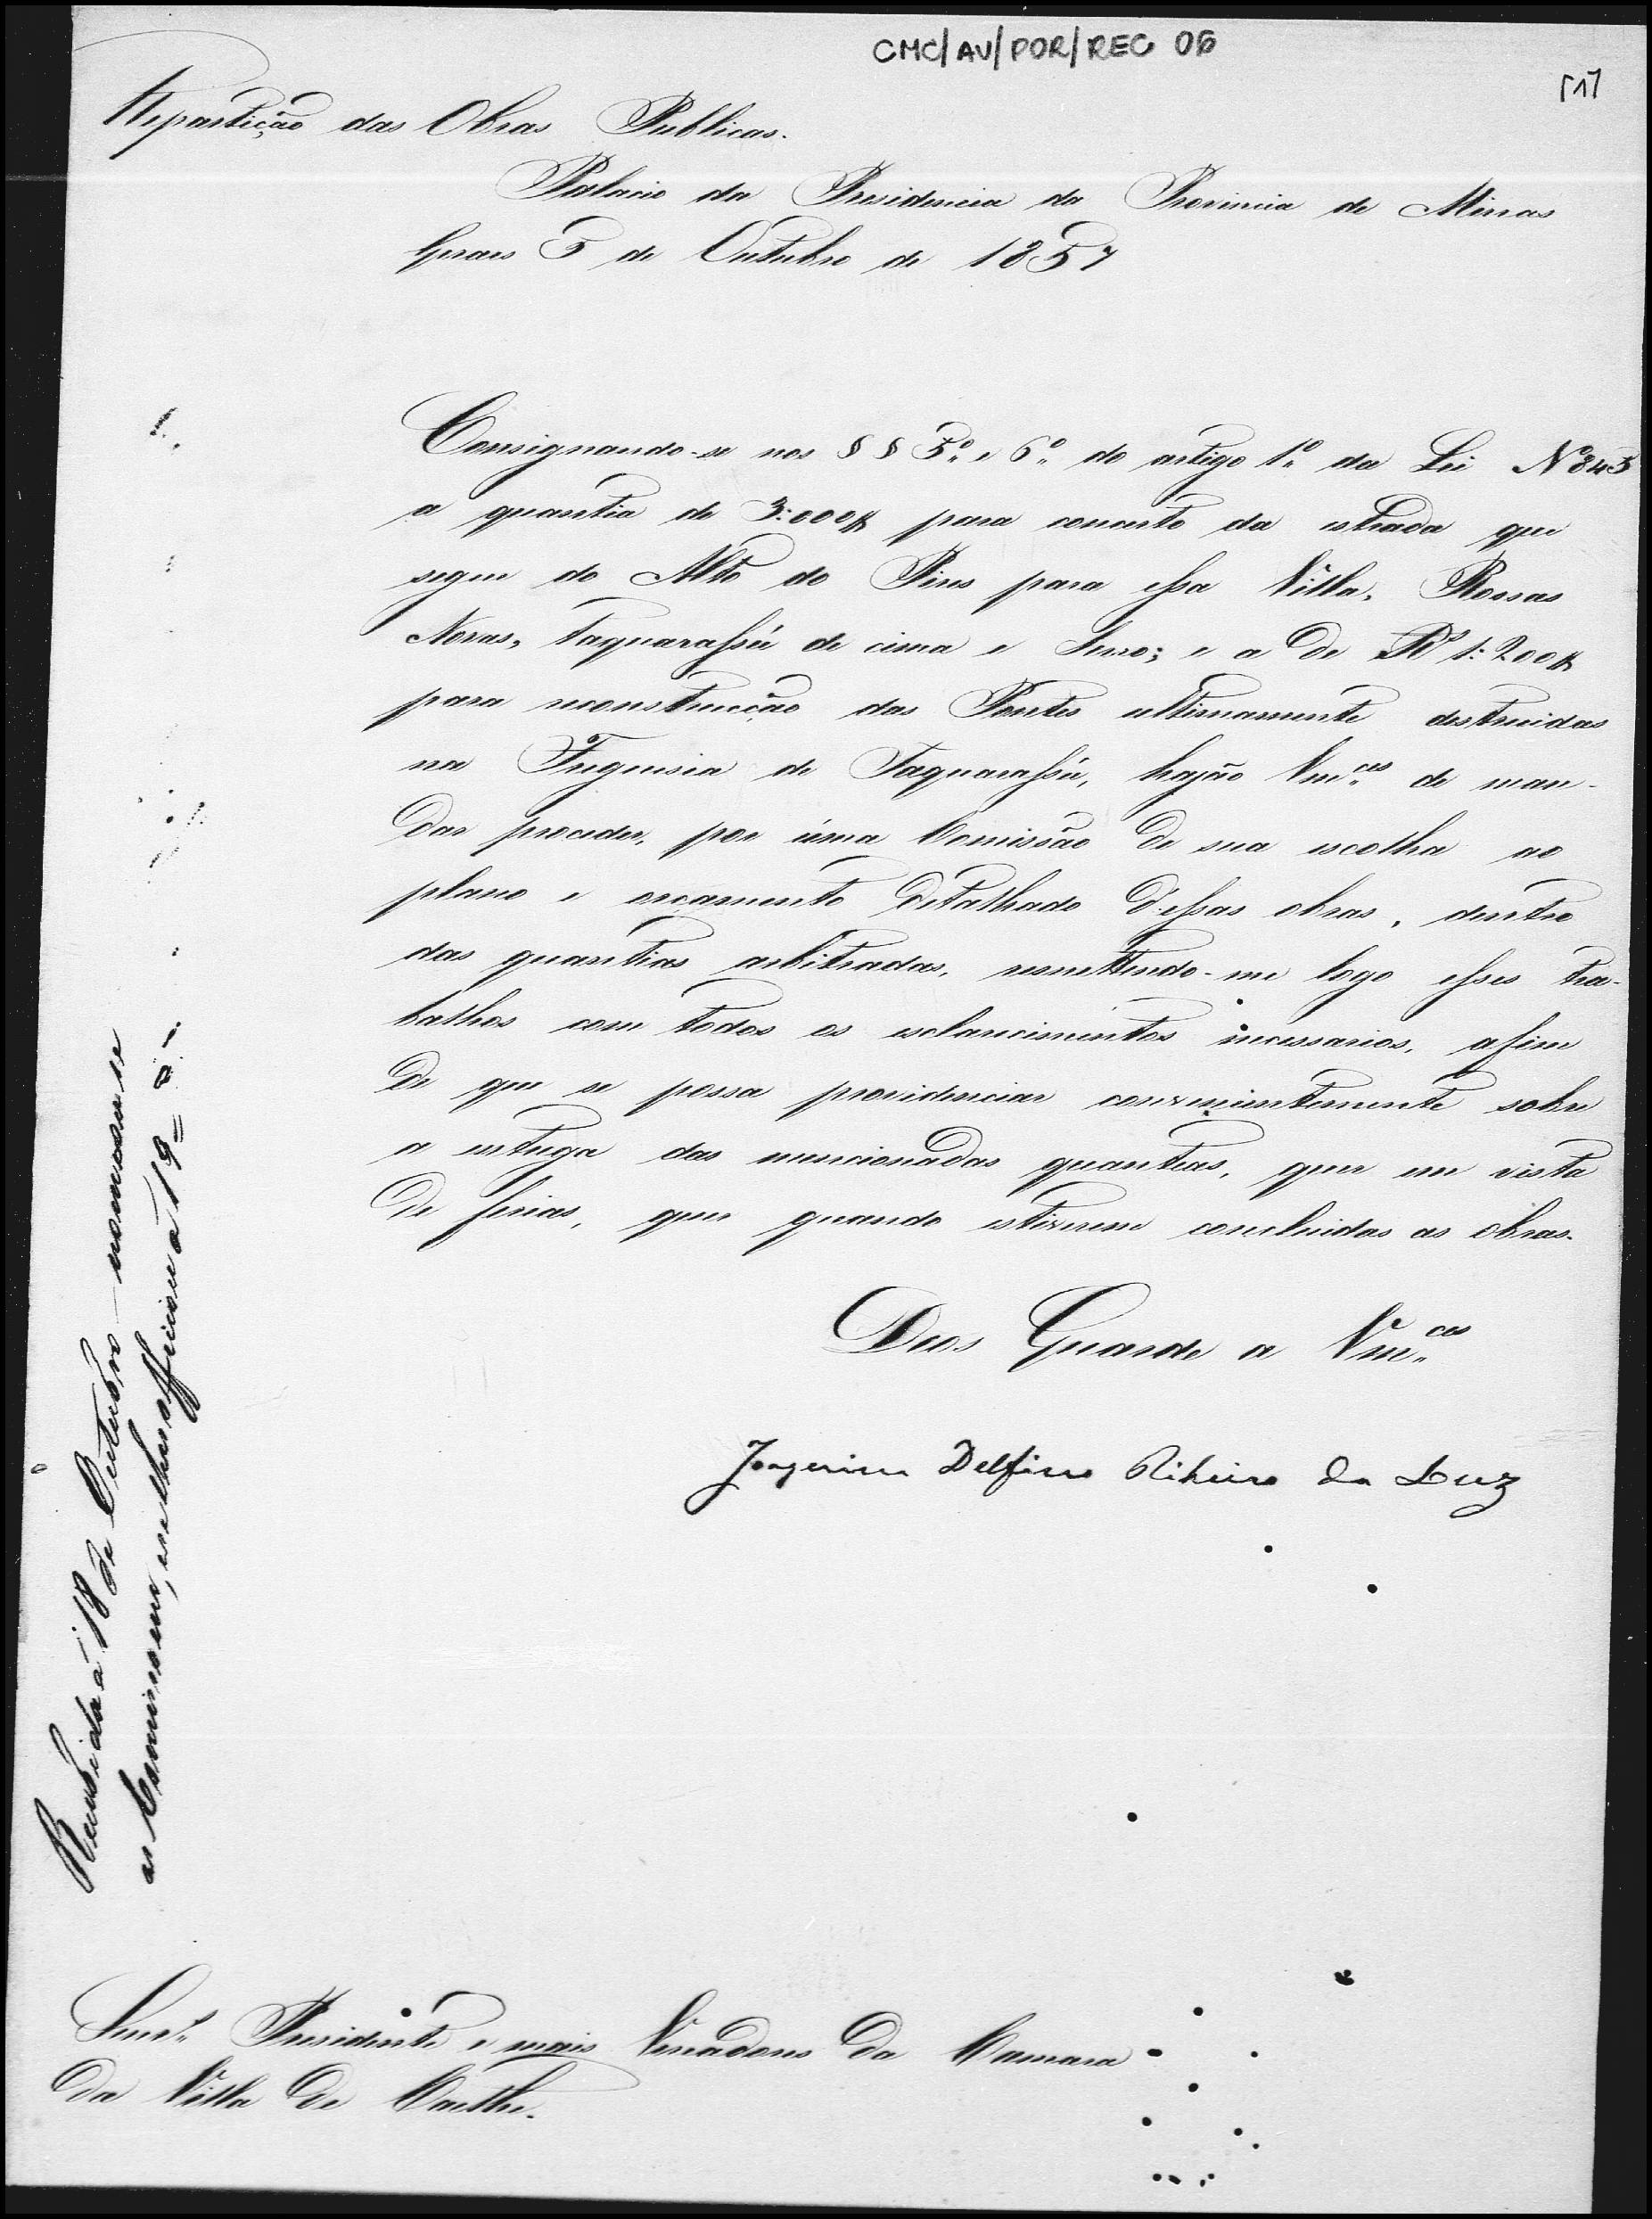 CMC/AV/POR/REC 06
[1]
Repartição das Obras Publicas.
Palacio da Presidencia da Provincia de Minas
Geraes 5 de Outubro de 1857
Consignando-se nos §§ 5º e 6º do artigo 1º da Lei Nº 843
a quantia de 3:000$ para concerto da estrada que
segue do Alto do Pires para essa Villa, Rossas
Novas, Taquarassú de cima e Serro; e a de Rs 1:200$
para reconstrucção das Pontes ultimamente destruidas
na Freguesia de Taquarassú, hajão Vmces de man-
dar proceder, por uma Comissão de sua escolha ao
plano e orçamento detalhado d'essas obras, dentro
das quantias arbitradas, remettendo-me logo esses tra-
balhos com todos os esclarecimentos necessarios, afim
de que se possa providenciar convenientemente sobre
a entrega das mencionadas quantias, quer em vista
de ferias, quer quando estiverem concluidas as obras.
Deos Guarde a Vmces
Joaquim Delfino Ribeiro da Luz
Recebida á 18 de Outubro - nomeou-se
as Comissoens, e se lhes officiou a 19
Senrs Presidente e mais Vereadores da Camara
da Villa de Caethe.